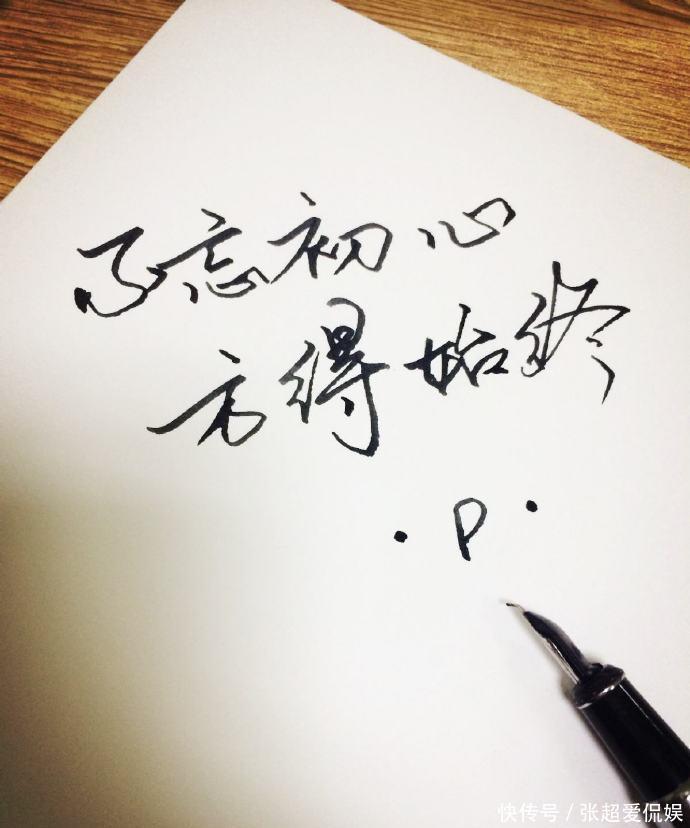 不忘初心
方得始终
·P·
快传号/张超爱侃娱